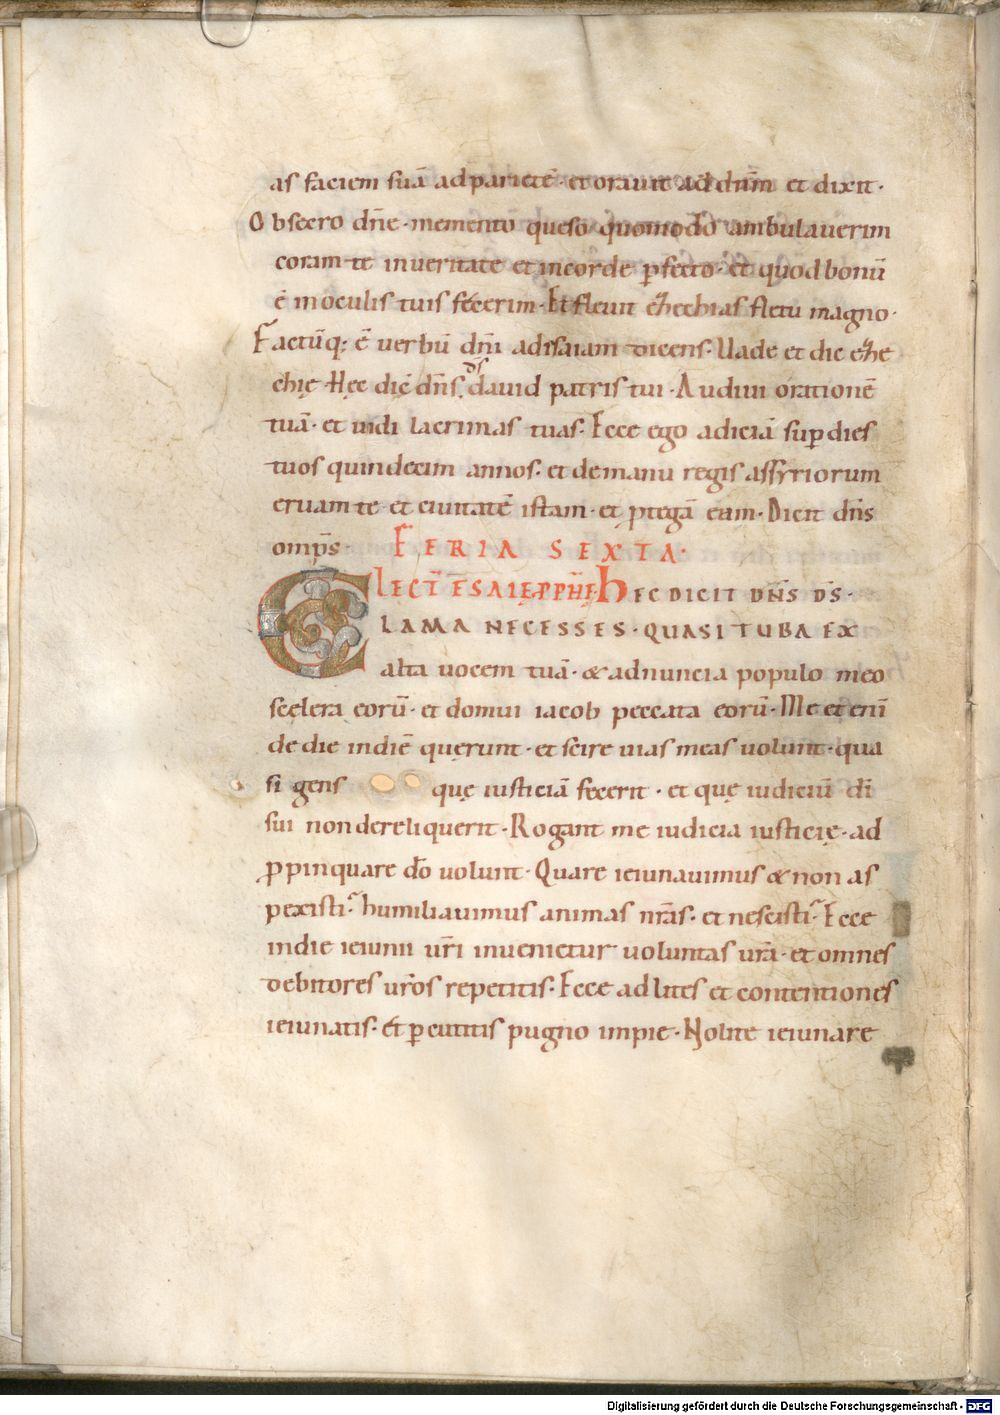 as faciem suā ad parietē· et orauit ad dn̄m et dixit·
Obsecro dn̄e· memento queso quomodo ambulauerim
coram te in ueritate et in corde ꝑfecto· et quod bonū
ē in oculis tuis fecerim· Et fleuit ezhechias fletu magno·
Factūq; ē uerbū dn̄i ad isaiam dicens· Uade et dic ezhe
chię· Hęc dic̄ dn̄s ds̄ dauid patris tui· Audiui orationē
tuā· et uidi lacrimas tuas· Ecce ego adiciā suꝑ dies
tuos quindecim annos· et de manu regis assyriorum
eruam te et ciuitatē istam· et ꝓtegā eam· Dicit dn̄s
omp̄s· FERIA SEXTA·
LECT̄ ESAIĘ PPHĘ· HEC DICIT DN̄S DS̄·
CLAMA NE CESSES· QUASI TUBA EX
alta uocem tuā· & adnuncia populo meo
scelera eorū· et domui iacob peccata eorū· Me et enī
de die in diē querunt· et scire uias meas uolunt· qua
si gens quę iusticiā fecerit· et quę iudiciū dī
sui non dereliquerit· Rogant me iudicia iusticię· ad
ꝓpinquare dō uolunt· Quare ieiunauimus & non as
pexisti· humiliauimus animas nrās· et nescisti· Ecce
in die ieiunii urī inuenietur uoluntas urā· et omnes
debitores urōs repetitis· Ecce ad lites et contentiones
ieiunatis· et ꝑcutitis pugno impie· Nolite ieiunare
Digitalisierung gefördert durch die Deutsche Forschungsgemeinschaft - DFG